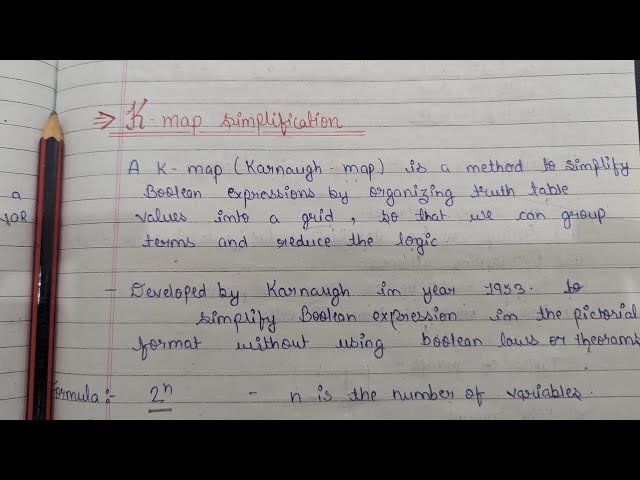 ⇒ K-map simplification
A K-map (Karnaugh-map) is a method to simplify
Boolean expressions by organizing truth table
values into a grid, so that we can group
terms and reduce the logic.
- Developed by Karnaugh in year 1953. to
simplify Boolean expression in the pictorial
format without using boolean laws or theorams
Formula:- 2ⁿ - n is the number of variables.
a